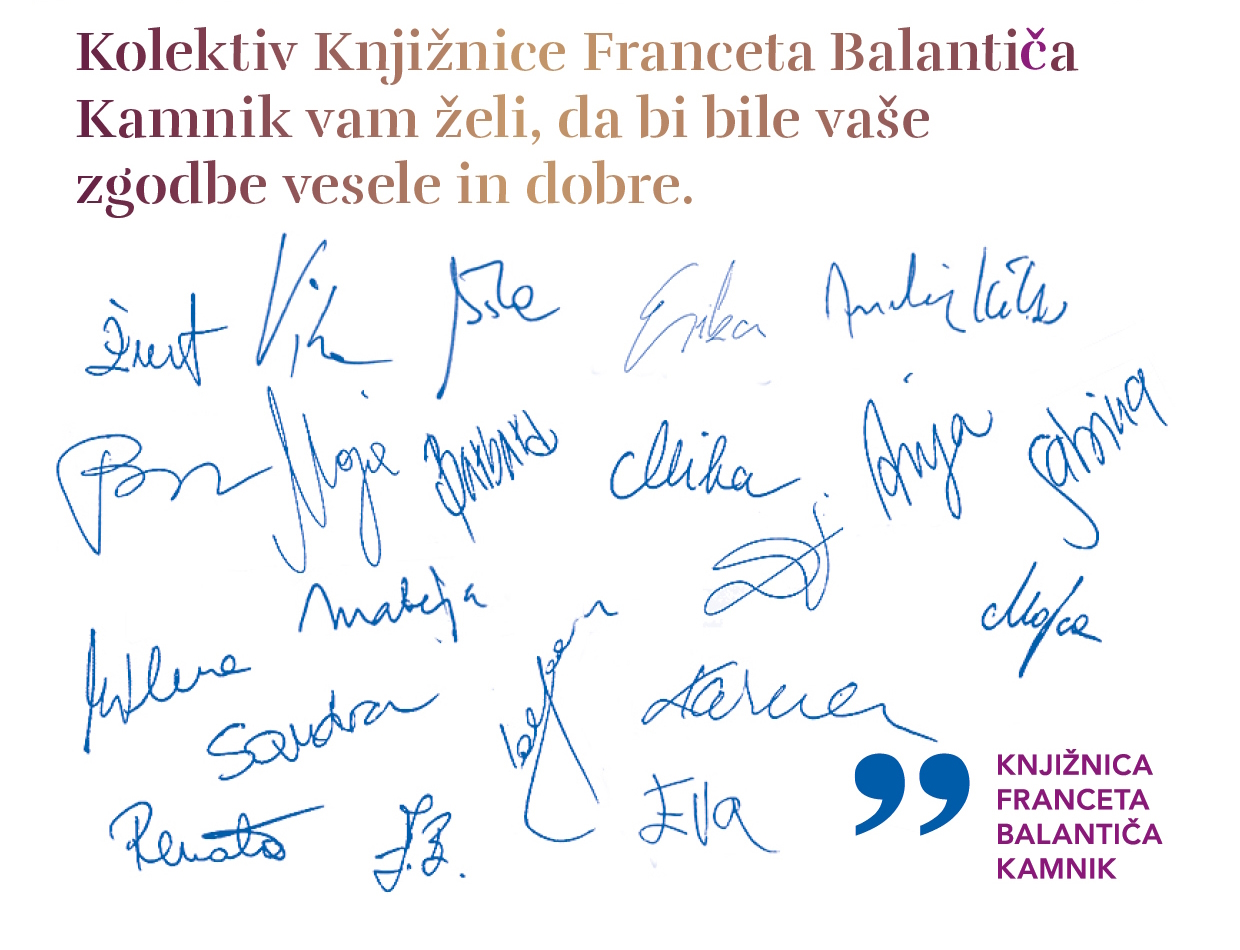 Kolektiv Knjižnice Franceta Balantiča
Kamnik vam želi, da bi bile vaše
zgodbe vesele in dobre.
Erika Andrej
Barbara Miha Anja Sabina
Mateja
Mojca
Milena
Sandra
Karmen
Renata
J.B.
Eva
KNJIŽNICA
FRANCETA
BALANTIČA
KAMNIK